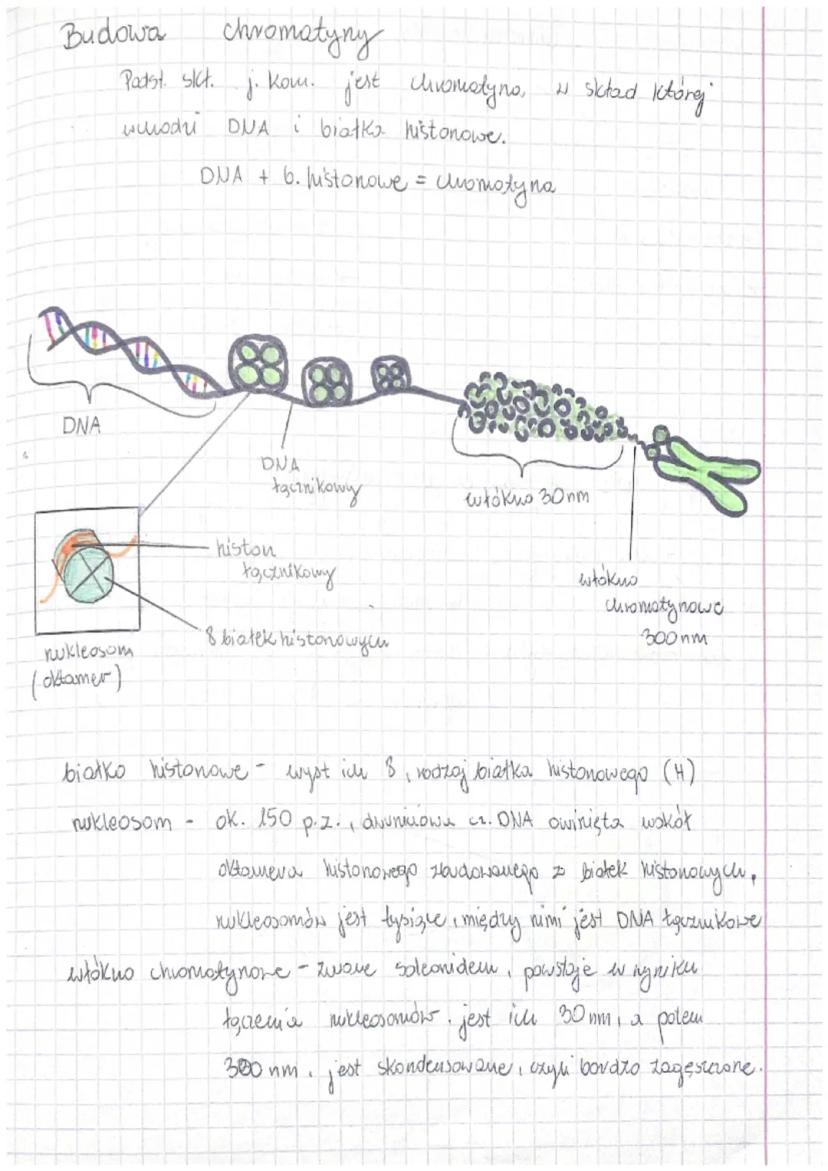 Budowa chromatyny
Podst. skł. j. kom. jest chromatyna, w skład której
wchodzi DNA i białka histonowe.
DNA + b. histonowe = chromatyna
DNA
DNA
łącznikowy
włókno 30nm
histon
łącznikowy
włókno
chromatynowe
300nm
8 białek histonowych
nukleosom
(oktamer)
białko histonowe - wyst ich 8, rodzaj białka histonowego (H)
nukleosom - ok. 150 p.z., dwuniciowa cz. DNA owinięta wokół
oktamera histonowego zbudowanego z białek histonowych,
nukleosomów jest tysiące, między nimi jest DNA łącznikowe
włókno chromatynowe - zwane soleonidem, powstaje w wyniku
łączenia nukleosomów. jest ich 30 nm, a potem
300 nm. jest skondensowane, czyli bardzo zagęszczone.